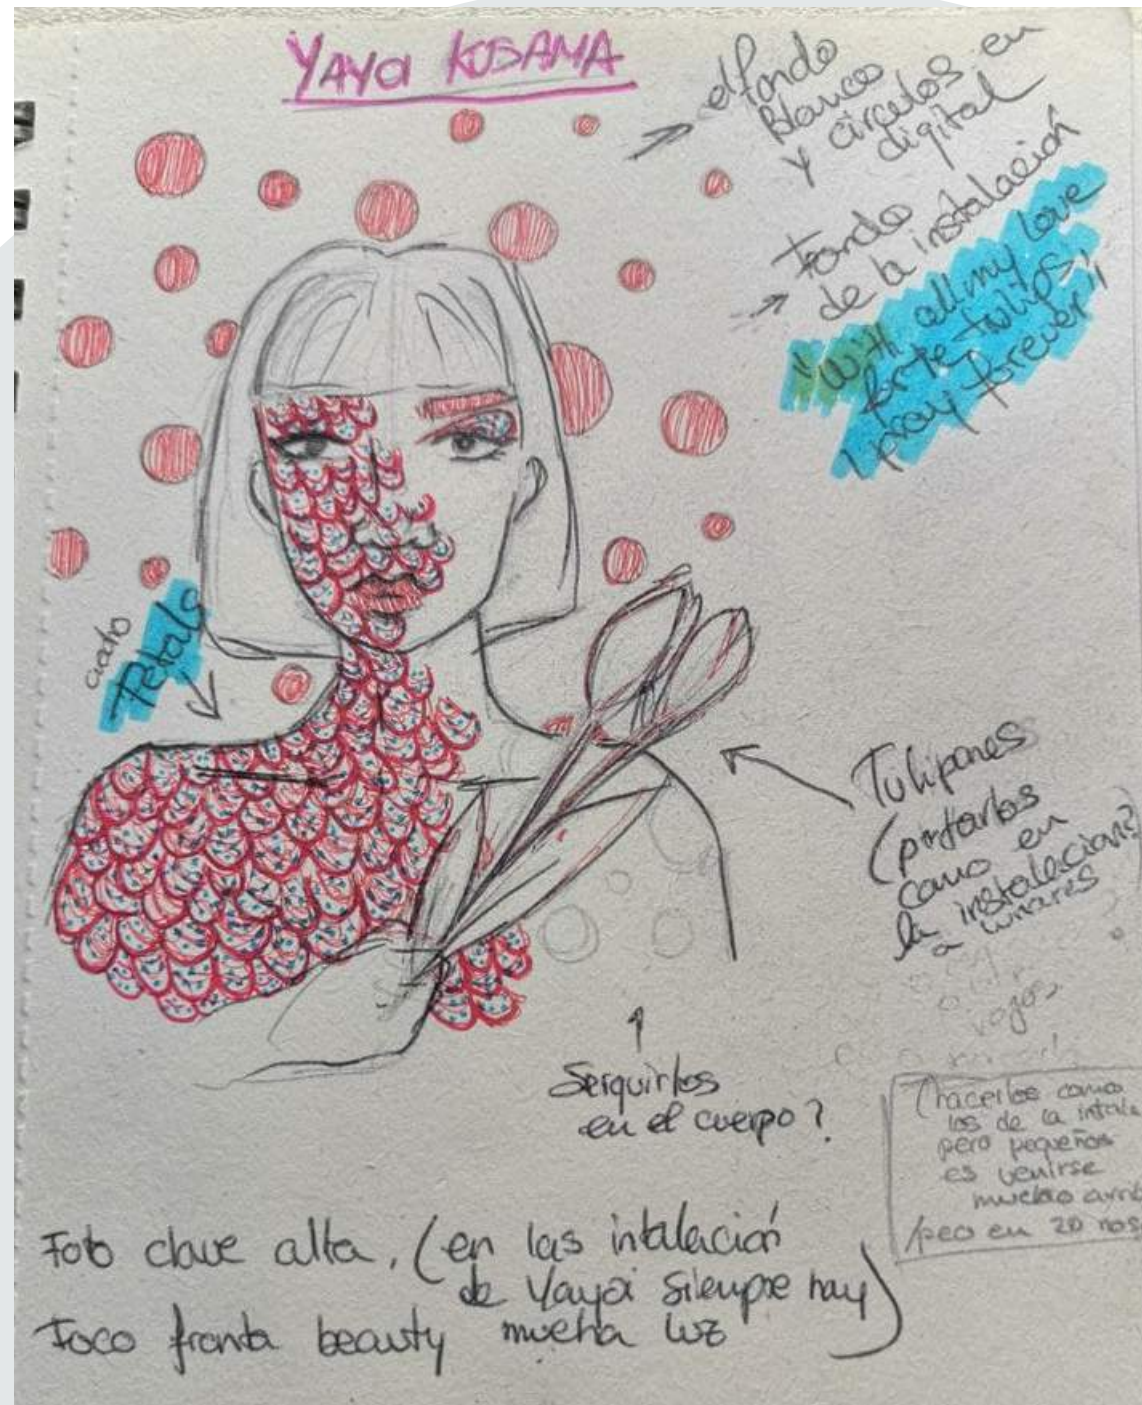 YAYOI KUSAMA
el fondo
Blanco
y circulos en
digital
Fondo
de la instalación
"With all my love
for te tulips,
I pray forever"
cuadro
Petals
Tulipanes
(pintarlos
como en
la instalacion?
a lunares
rojos
Serguirlos
en el cuerpo?
(hacerlos como
los de la intala
pero pequeños
es venirse
mucho arrib
/peo en 20 nos
Foto clave alta. (en las intalación
de Yayoi siempre hay
Foco fronta beauty mucha luz)